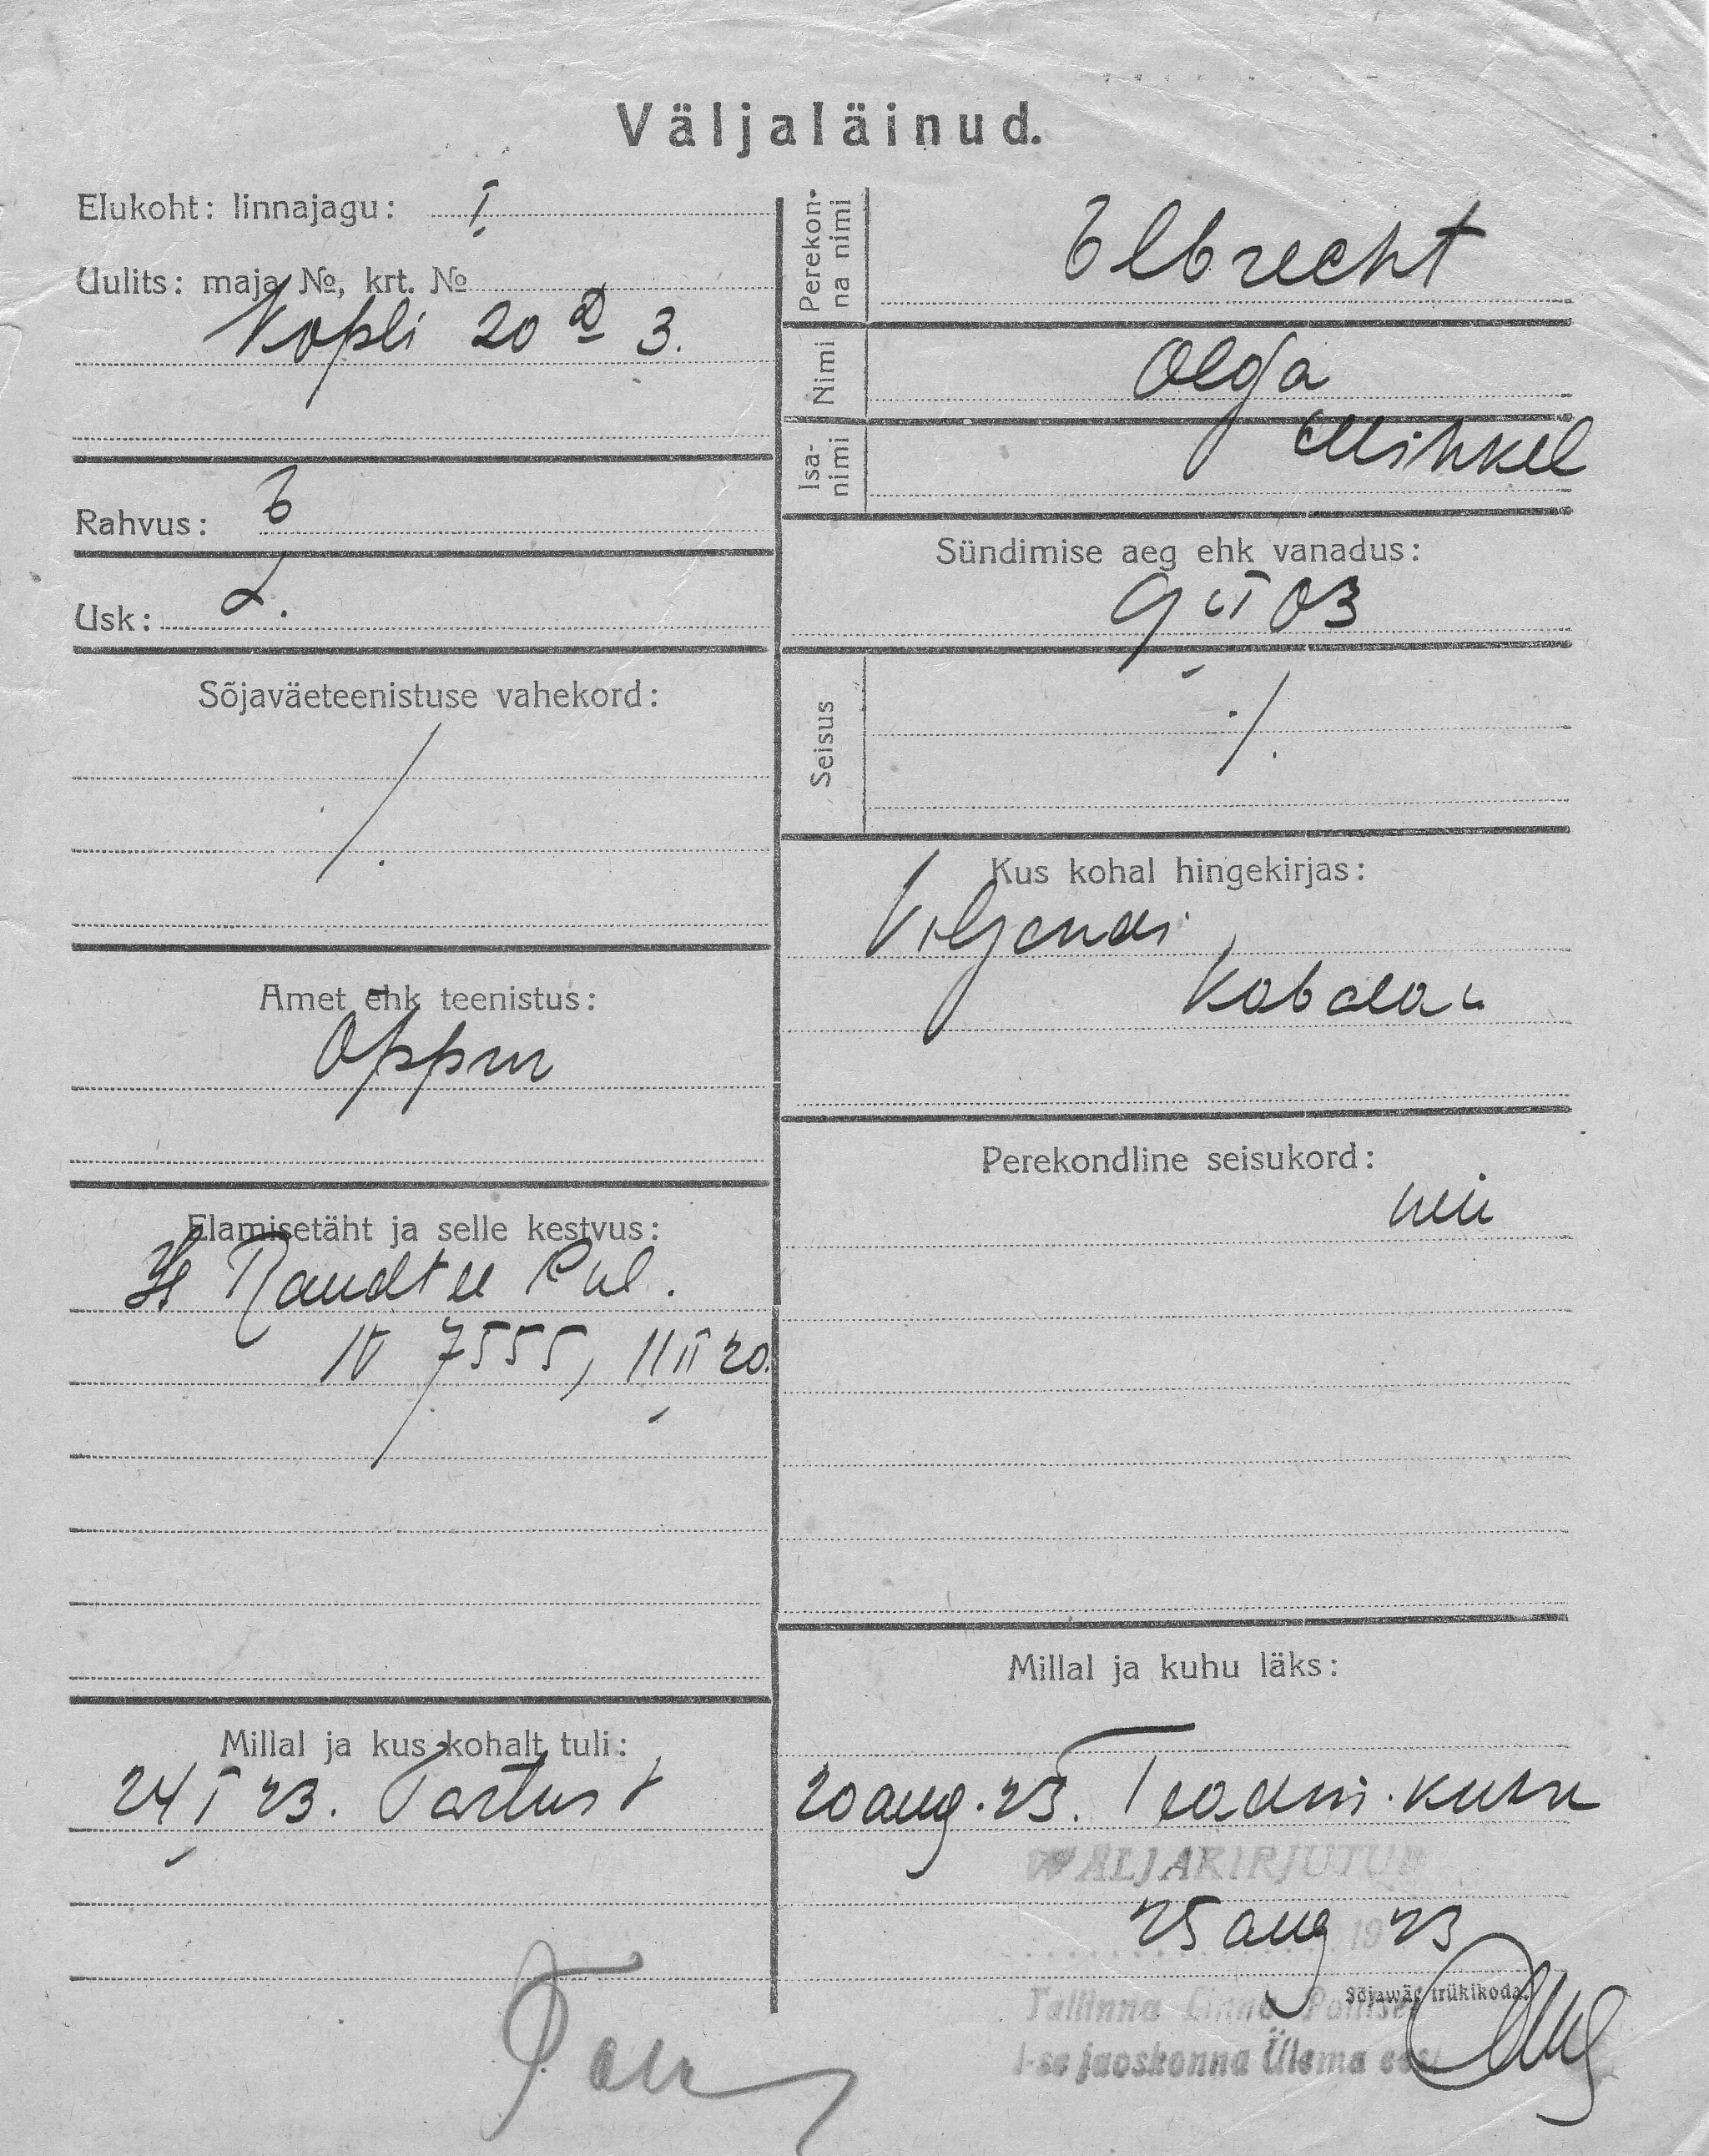 Väljaläinud.
Elukoht: linnajagu: I
Uulits: maja №, krt. №
Kopli 20 a 3.
Rahvus: E
Usk: L.
Sõjaväeteenistuse vahekord:
./.
Amet ehk teenistus:
Õppur
Elamisetäht ja selle kestvus:
Raudtee Pol.
N 7555, 11 II 20.
Millal ja kus kohalt tuli:
24 I 23. Tartust
Perekonna nimi
Elbrecht
Nimi
Olga
Isanimi
Mihkel
Sündimise aeg ehk vanadus:
9 II 03
Seisus
./.
Kus kohal hingekirjas:
Viljandi
Kabala
Perekondline seisukord:
neiu
Millal ja kuhu läks:
20 aug. 23. Teadm. kuhu
VÄLJAKIRJUTUD
25 aug 1923
Sõjawäe trükikoda.
Tallinna Linna Politsei
I-se jaoskonna Ülema eest